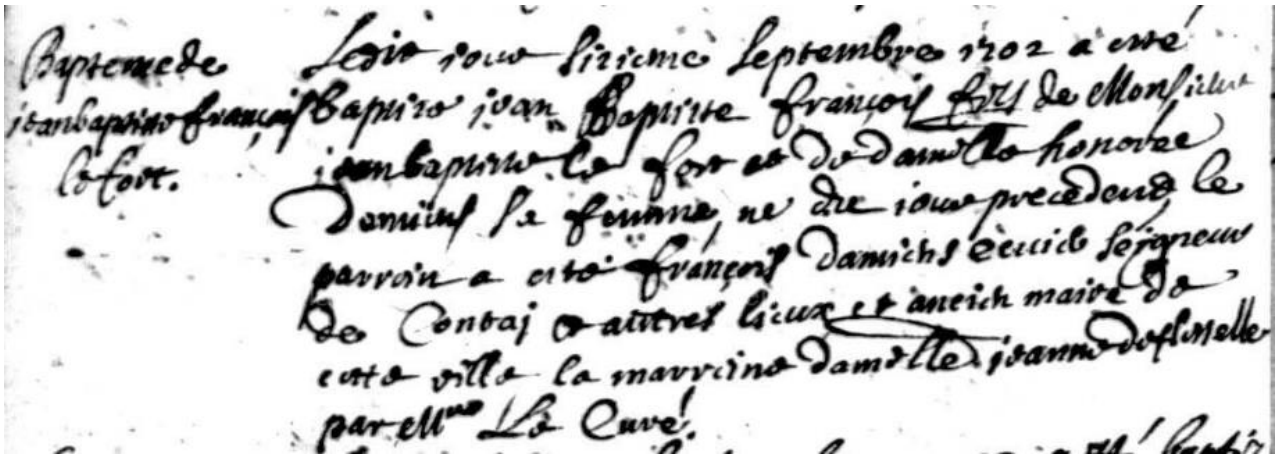 Baptemede
jeanbaptiste françois
le fort.
Ledit jour sixieme septembre 1702 a este
baptise jean Baptiste françois fils de Monsieur
jean baptiste le fort et de damelle honorée
Damiens sa femme, ne du jour precedent, le
parrain a esté françois damiens ecuier seigneur
de Contai et autres lieux et ancien maire de
cette ville la marraine damelle jeanne
par Mr Le Curé